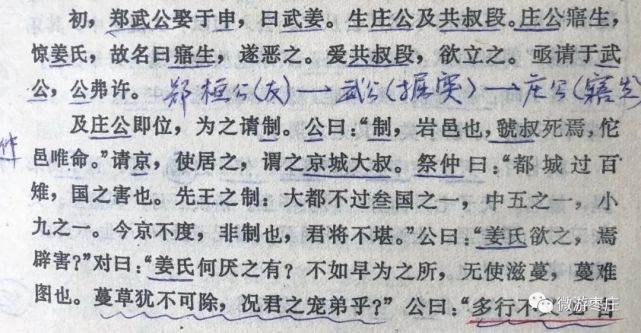 初，郑武公娶于申，曰武姜。生庄公及共叔段。庄公寤生，
惊姜氏，故名曰寤生，遂恶之。爱共叔段，欲立之。亟请于武
公，公弗许。 郑桓公(友)→武公(掘突)→庄公(寤生
及庄公即位，为之请制。公曰：“制，岩邑也，虢叔死焉，佗
邑唯命。”请京，使居之，谓之京城大叔。祭仲曰：“都城过百
雉，国之害也。先王之制：大都不过叁国之一，中五之一，小
九之一。今京不度，非制也，君将不堪。”公曰：“姜氏欲之，焉
辟害？”对曰：“姜氏何厌之有？不如早为之所，无使滋蔓，蔓难
图也。蔓草犹不可除，况君之宠弟乎？”公曰：“多行不
微游枣庄